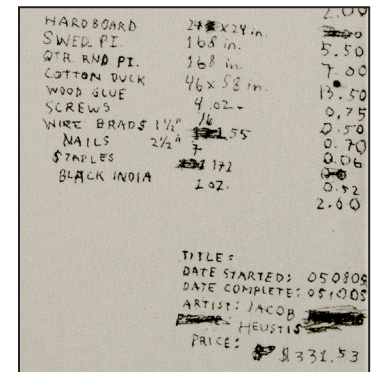 2.00
HARDBOARD 24 x 24 in.
SWED. PI. 168 in. 5.50
QTR. RND PI. 168 in. 7.00
COTTON DUCK 46 x 58 in. 13.50
WOOD GLUE 4 OZ. 0.75
SCREWS 16 0.50
WIRE BRADS 1½" 55 0.70
NAILS 2½" 7 0.06
STAPLES 171
BLACK INDIA 1 OZ. 0.52
2.00
TITLE:
DATE STARTED: 050809
DATE COMPLETE: 051005
ARTIST: JACOB
HEUSTIS
PRICE: $331.53